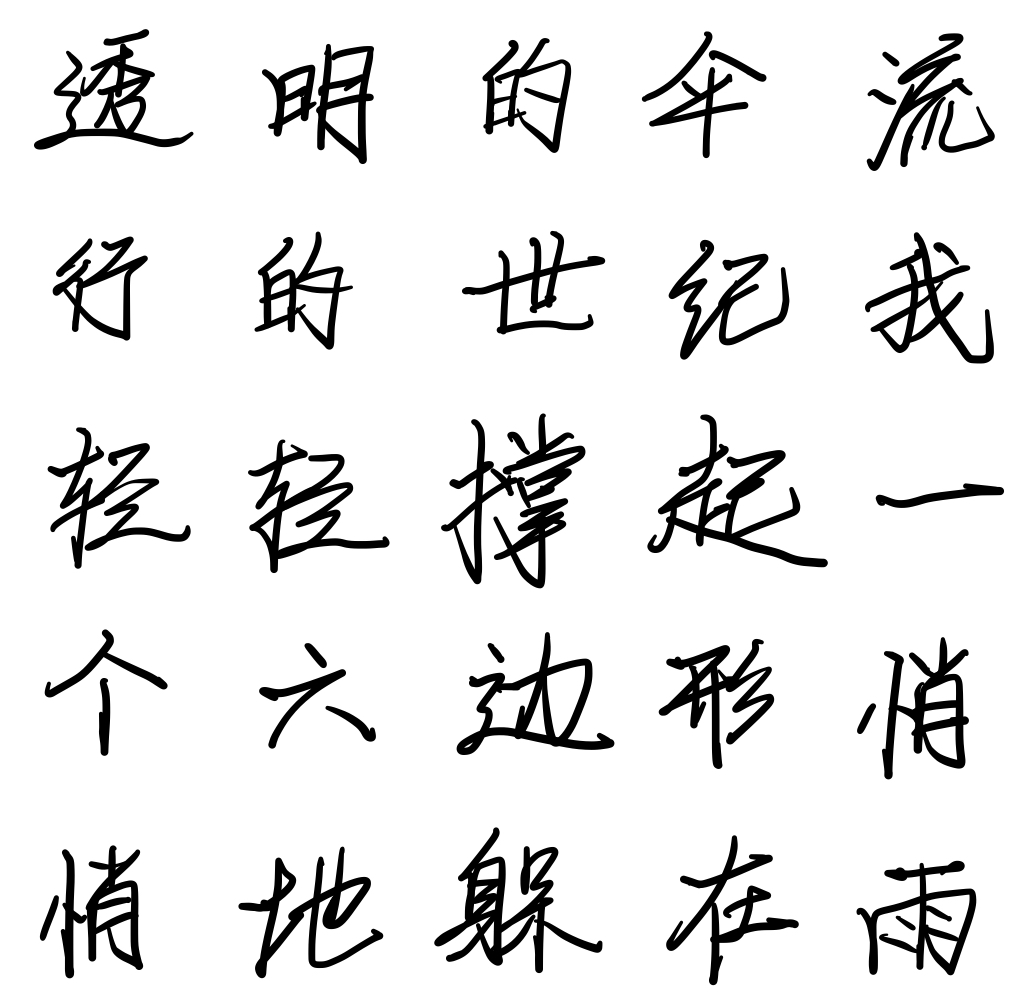 透明的伞流
行的世纪我
轻轻撑起一
个六边形悄
悄地躲在雨